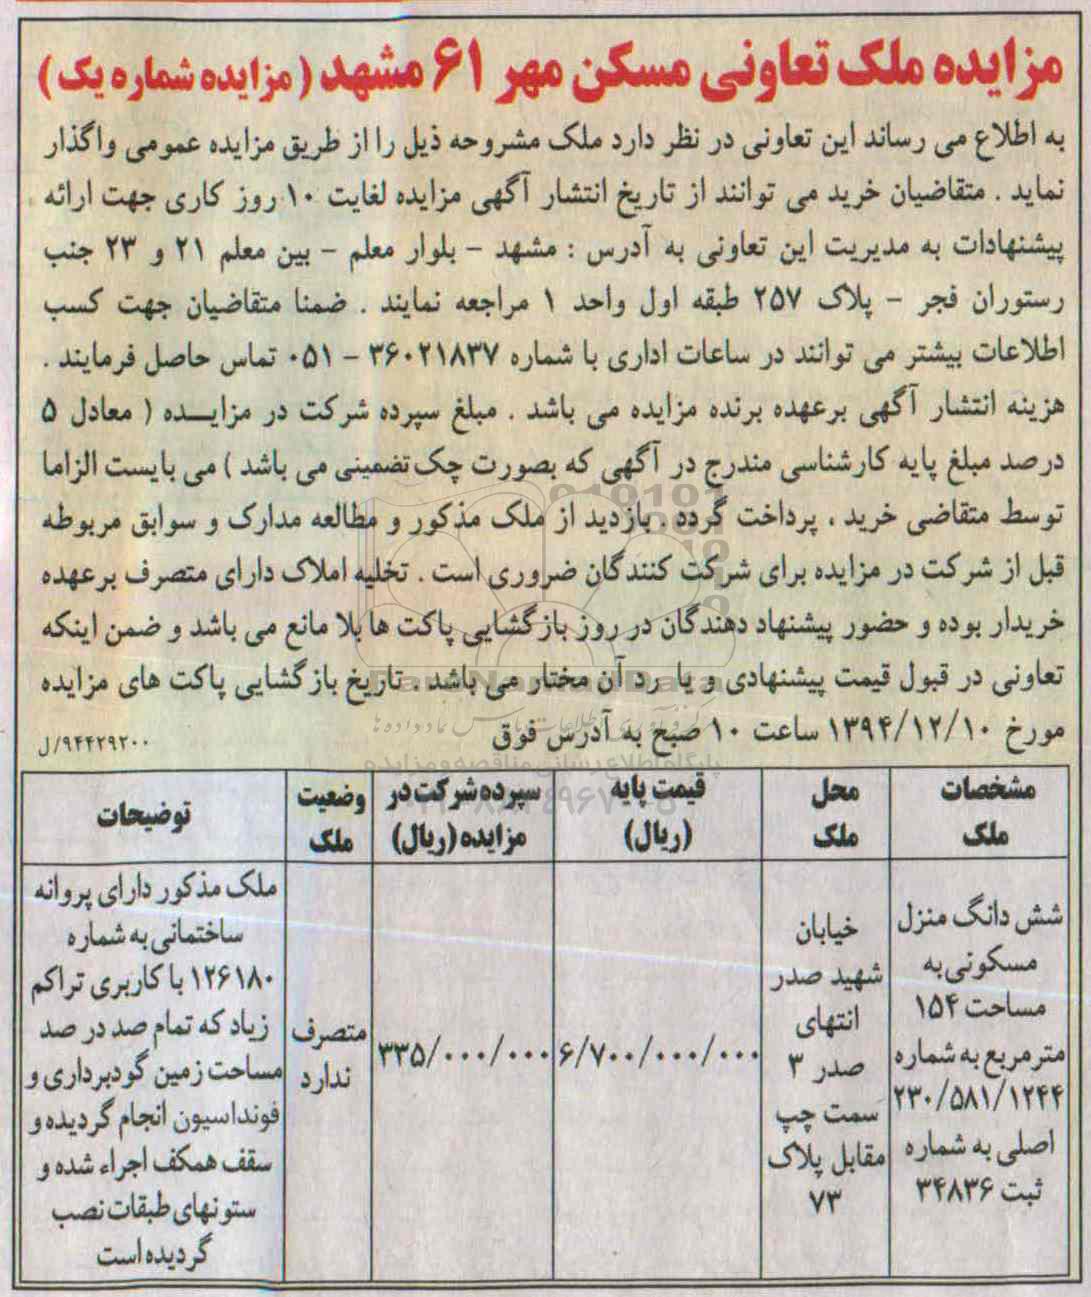 مزایده ملک تعاونی مسکن مهر ۶۱ مشهد ( مزایده شماره یک )
به اطلاع می رساند این تعاونی در نظر دارد ملک مشروحه ذیل را از طریق مزایده عمومی واگذار
نماید . متقاضیان خرید می توانند از تاریخ انتشار آگهی مزایده لغایت ۱۰ روز کاری جهت ارائه
پیشنهادات به مدیریت این تعاونی به آدرس : مشهد - بلوار معلم - بین معلم ۲۱ و ۲۳ جنب
رستوران فجر - پلاک ۲۵۷ طبقه اول واحد ۱ مراجعه نمایند . ضمنا متقاضیان جهت کسب
اطلاعات بیشتر می توانند در ساعات اداری با شماره ۳۶۰۲۱۸۳۷ - ۰۵۱ تماس حاصل فرمایند .
هزینه انتشار آگهی برعهده برنده مزایده می باشد . مبلغ سپرده شرکت در مزایـــده ( معادل ۵
درصد مبلغ پایه کارشناسی مندرج در آگهی که بصورت چک تضمینی می باشد ) می بایست الزاما
توسط متقاضی خرید ، پرداخت گردد . بازدید از ملک مذکور و مطالعه مدارک و سوابق مربوطه
قبل از شرکت در مزایده برای شرکت کنندگان ضروری است . تخلیه املاک دارای متصرف برعهده
خریدار بوده و حضور پیشنهاد دهندگان در روز بازگشایی پاکت ها بلا مانع می باشد و ضمن اینکه
تعاونی در قبول قیمت پیشنهادی و یا رد آن مختار می باشد . تاریخ بازگشایی پاکت های مزایده
مورخ ۱۳۹۴/۱۲/۱۰ ساعت ۱۰ صبح به آدرس فوق
۹۴۴۲۹۲۰۰/ل
مشخصات ملک
محل ملک
قیمت پایه (ریال)
سپرده شرکت در مزایده (ریال)
وضعیت ملک
توضیحات
شش دانگ منزل
مسکونی به
مساحت ۱۵۴
مترمربع به شماره
۲۳۰/۵۸۱/۱۲۴۴
اصلی به شماره
ثبت ۳۴۸۳۶
خیابان
شهید صدر
انتهای
صدر ۳
سمت چپ
مقابل پلاک
۷۳
۶/۷۰۰/۰۰۰/۰۰۰
۳۳۵/۰۰۰/۰۰۰
متصرف
ندارد
ملک مذکور دارای پروانه
ساختمانی به شماره
۱۲۶۱۸۰ با کاربری تراکم
زیاد که تمام صد در صد
مساحت زمین گودبرداری و
فونداسیون انجام گردیده و
سقف همکف اجراء شده و
ستونهای طبقات نصب
گردیده است
پایگاه اطلاع رسانی مناقصه و مزایده